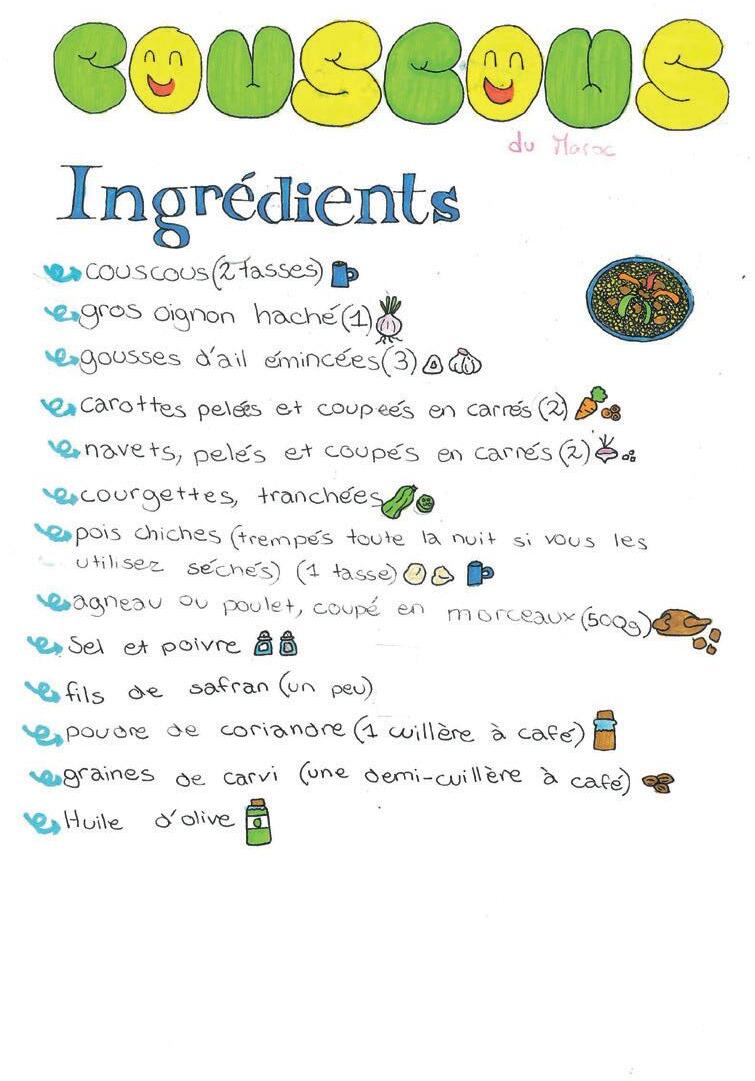 COUSCOUS
du Maroc
Ingrédients
couscous (2 tasses)
gros oignon haché (1)
gousses d'ail émincées (3)
carottes pelées et coupeés en carrés (2)
navets, pelés et coupés en carrés (2)
courgettes, tranchées
pois chiches (trempés toute la nuit si vous les
utilisez séchés) (1 tasse)
agneau ou poulet, coupé en morceaux (500g)
Sel et poivre
fils de safran (un peu)
poudre de coriandre (1 cuillère à café)
graines de carvi (une demi-cuillère à café)
Huile d'olive